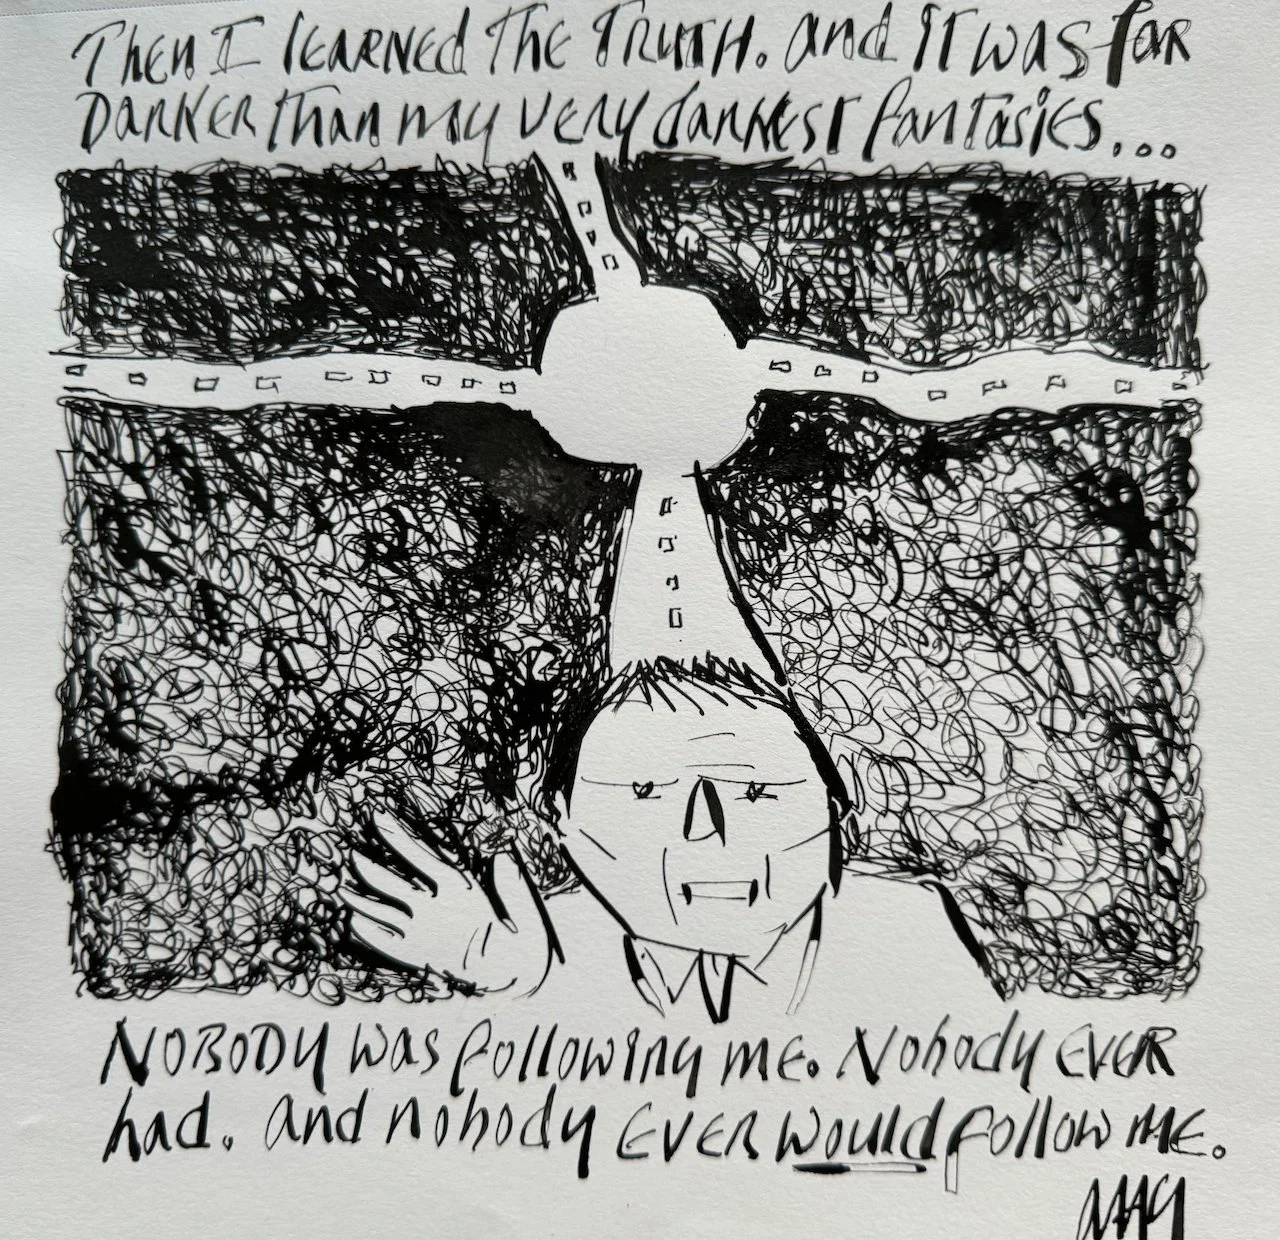 Then I learned the Truth. and it was far
Darker than my very darkest fantasies...
Nobody was following me. Nobody ever
had. and nobody ever would follow me.